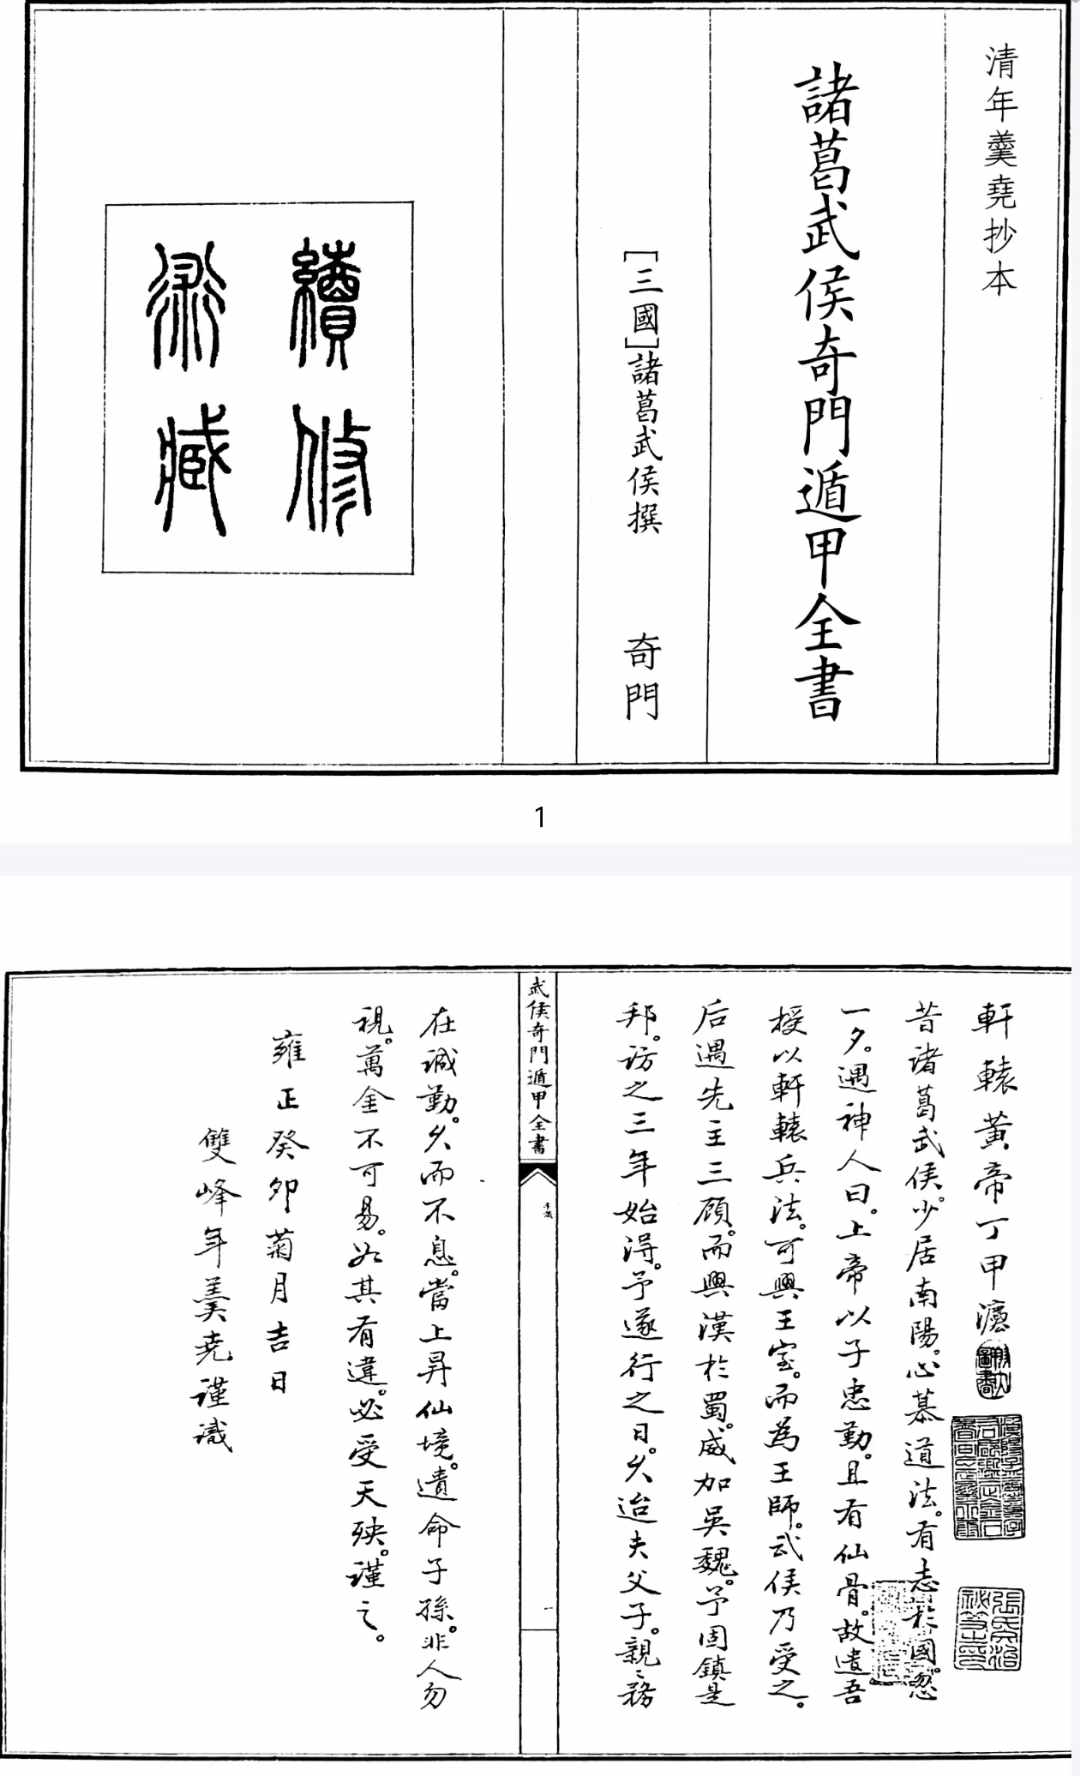 清年羹堯抄本
諸葛武侯奇門遁甲全書
[三國]諸葛武侯撰 奇門
續修
術藏
1
軒轅黃帝丁甲瀍
昔諸葛武侯。少居南陽。心慕道法。有志於國。忽
一夕。遇神人曰。上帝以子忠勤。且有仙骨。故遣吾
授以軒轅兵法。可興王室。而為王師。武侯乃受之。
后遇先主三顾。而興漢於蜀。威加吳魏。予因鎮是
邦。访之三年始得。予遂行之日。久迨夫父子。親之務
武侯奇門遁甲全書
一
在诚勤。久而不息。當上昇仙境。遺命子孫。非人勿
視。萬金不可易。如其有違。必受天殃。謹之。
雍正癸卯菊月吉日
雙峰年羹尧謹識